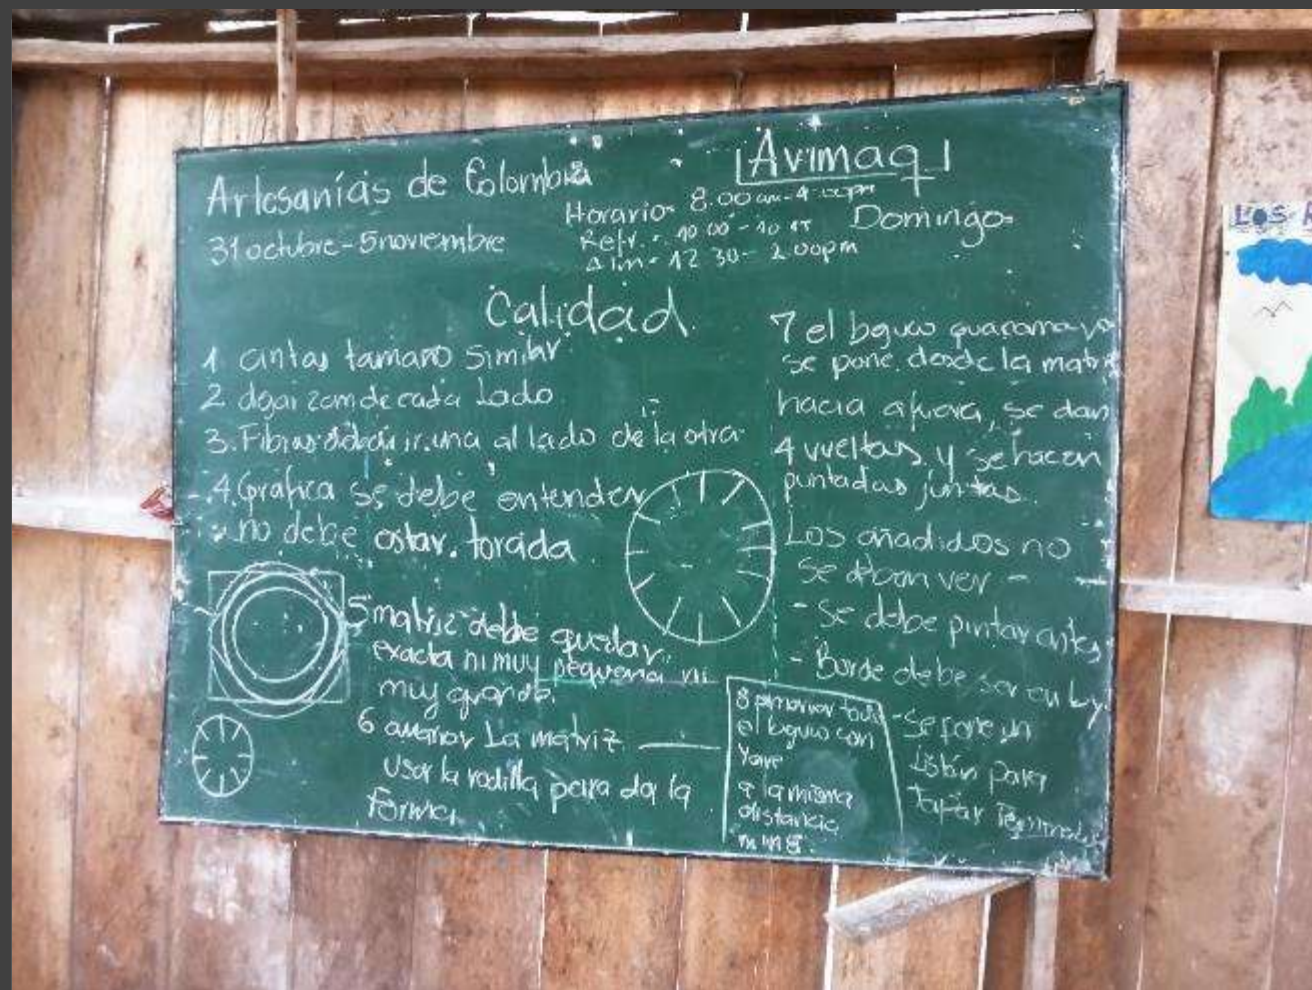 Artesanías de Colombia
31 octubre - 5 noviembre
Avimaq
Horario- 8.00 am - 4 00pm
Refr. - 10 00 - 10 15
Alm - 12 30 - 2.00pm
Domingo-
Calidad
1 cintas tamaño similar
2 dejar 2cm de cada lado
3. Fibras deben ir una al lado de la otra
4. Grafica se debe entender
no debe estar. torcida
5 matriz debe quedar
exacta ni muy pequeña ni
muy grande.
6 amarrar la matriz
usar la rodilla para da la
forma
7 el bejuco guacamayo
se pone desde la matriz
hacia afuera, se dan
4 vueltas y se hacen
puntadas juntas.
Los añadidos no
se deben ver -
- se debe pintar antes
- Borde debe ser en
- se pone un
listón para
tapar
8 amarrar todo
el bejuco con
Yare
a la misma
distancia
LOS